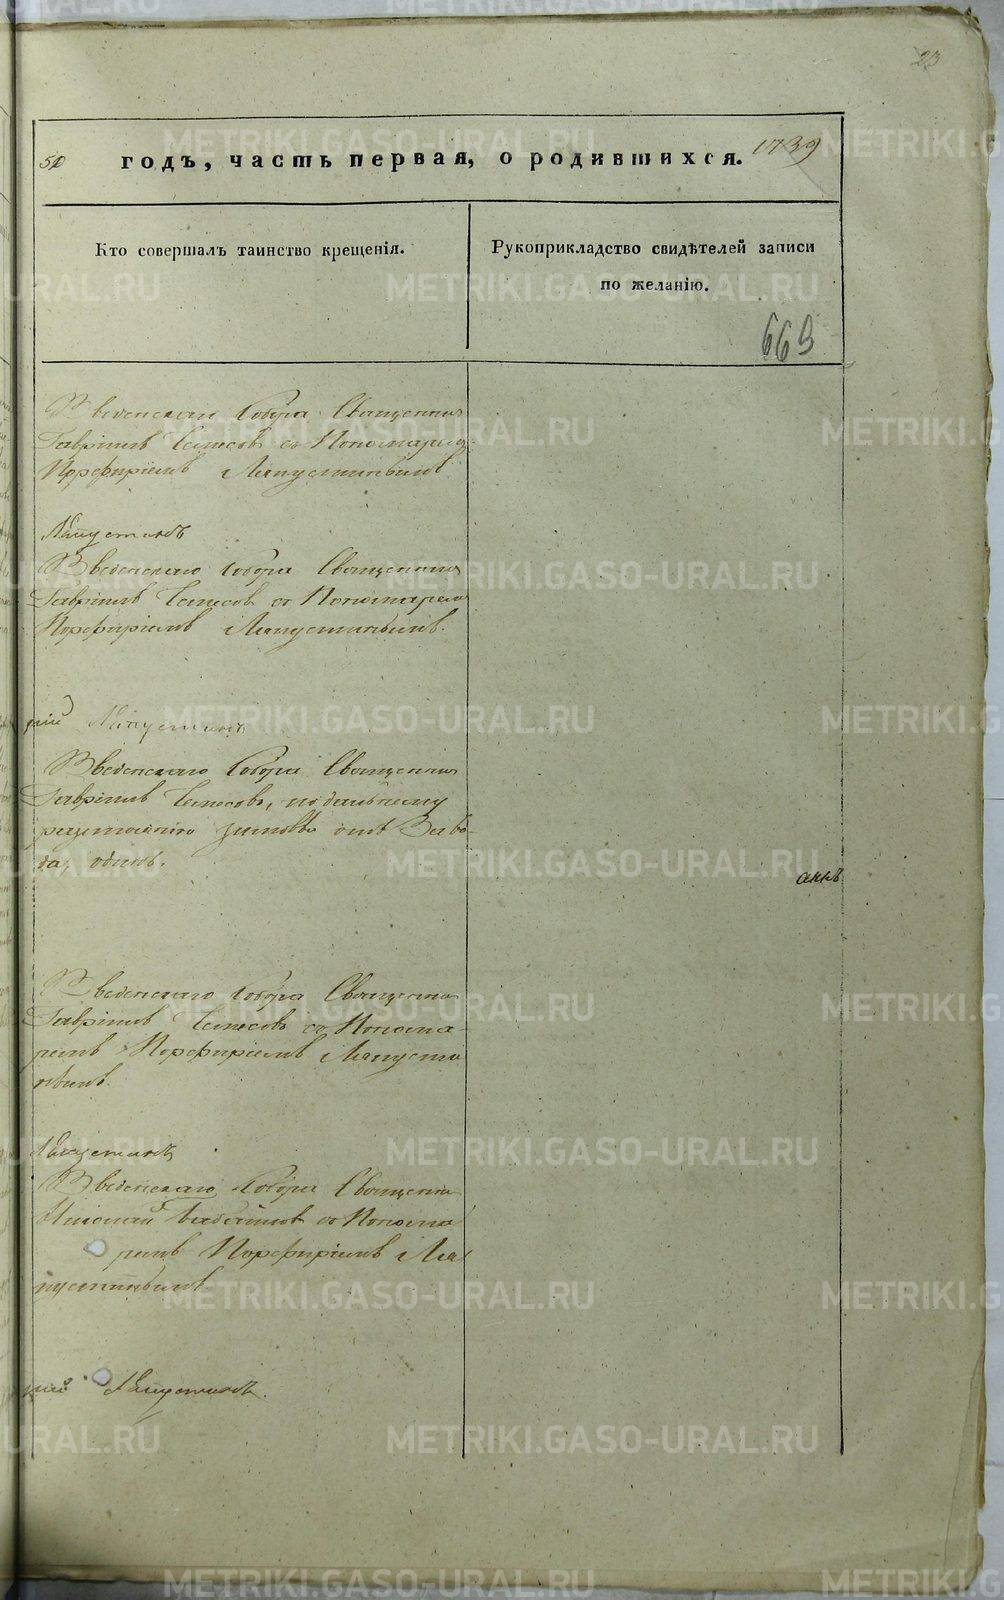 23
годъ, часть первая, о родившихся.
1739
Кто совершалъ таинство крещенія.
Рукоприкладство свидѣтелей записи
по желанію.
669
Введенскаго Собора Священникъ
Гавріилъ съ Пономаремъ
Порфиріемъ Ляпустинымъ
Ляпустинъ
Введенскаго Собора Священникъ
Гавріилъ съ Пономаремъ
Порфиріемъ Ляпустинымъ.
рій Ляпустинъ
Введенскаго Собора Священникъ
Гавріилъ по дальнему
разстоянію отъ Заво-
да, одинъ.
Введенскаго Собора Священникъ
Гавріилъ съ Понома-
ремъ Порфиріемъ Ляпусти
нымъ.
Ляпустинъ
Введенскаго Собора Священникъ
Николай съ Понома
ремъ Порфиріемъ Ля
пустинымъ
рій Ляпустинъ.
METRIKI.GASO-URAL.RU